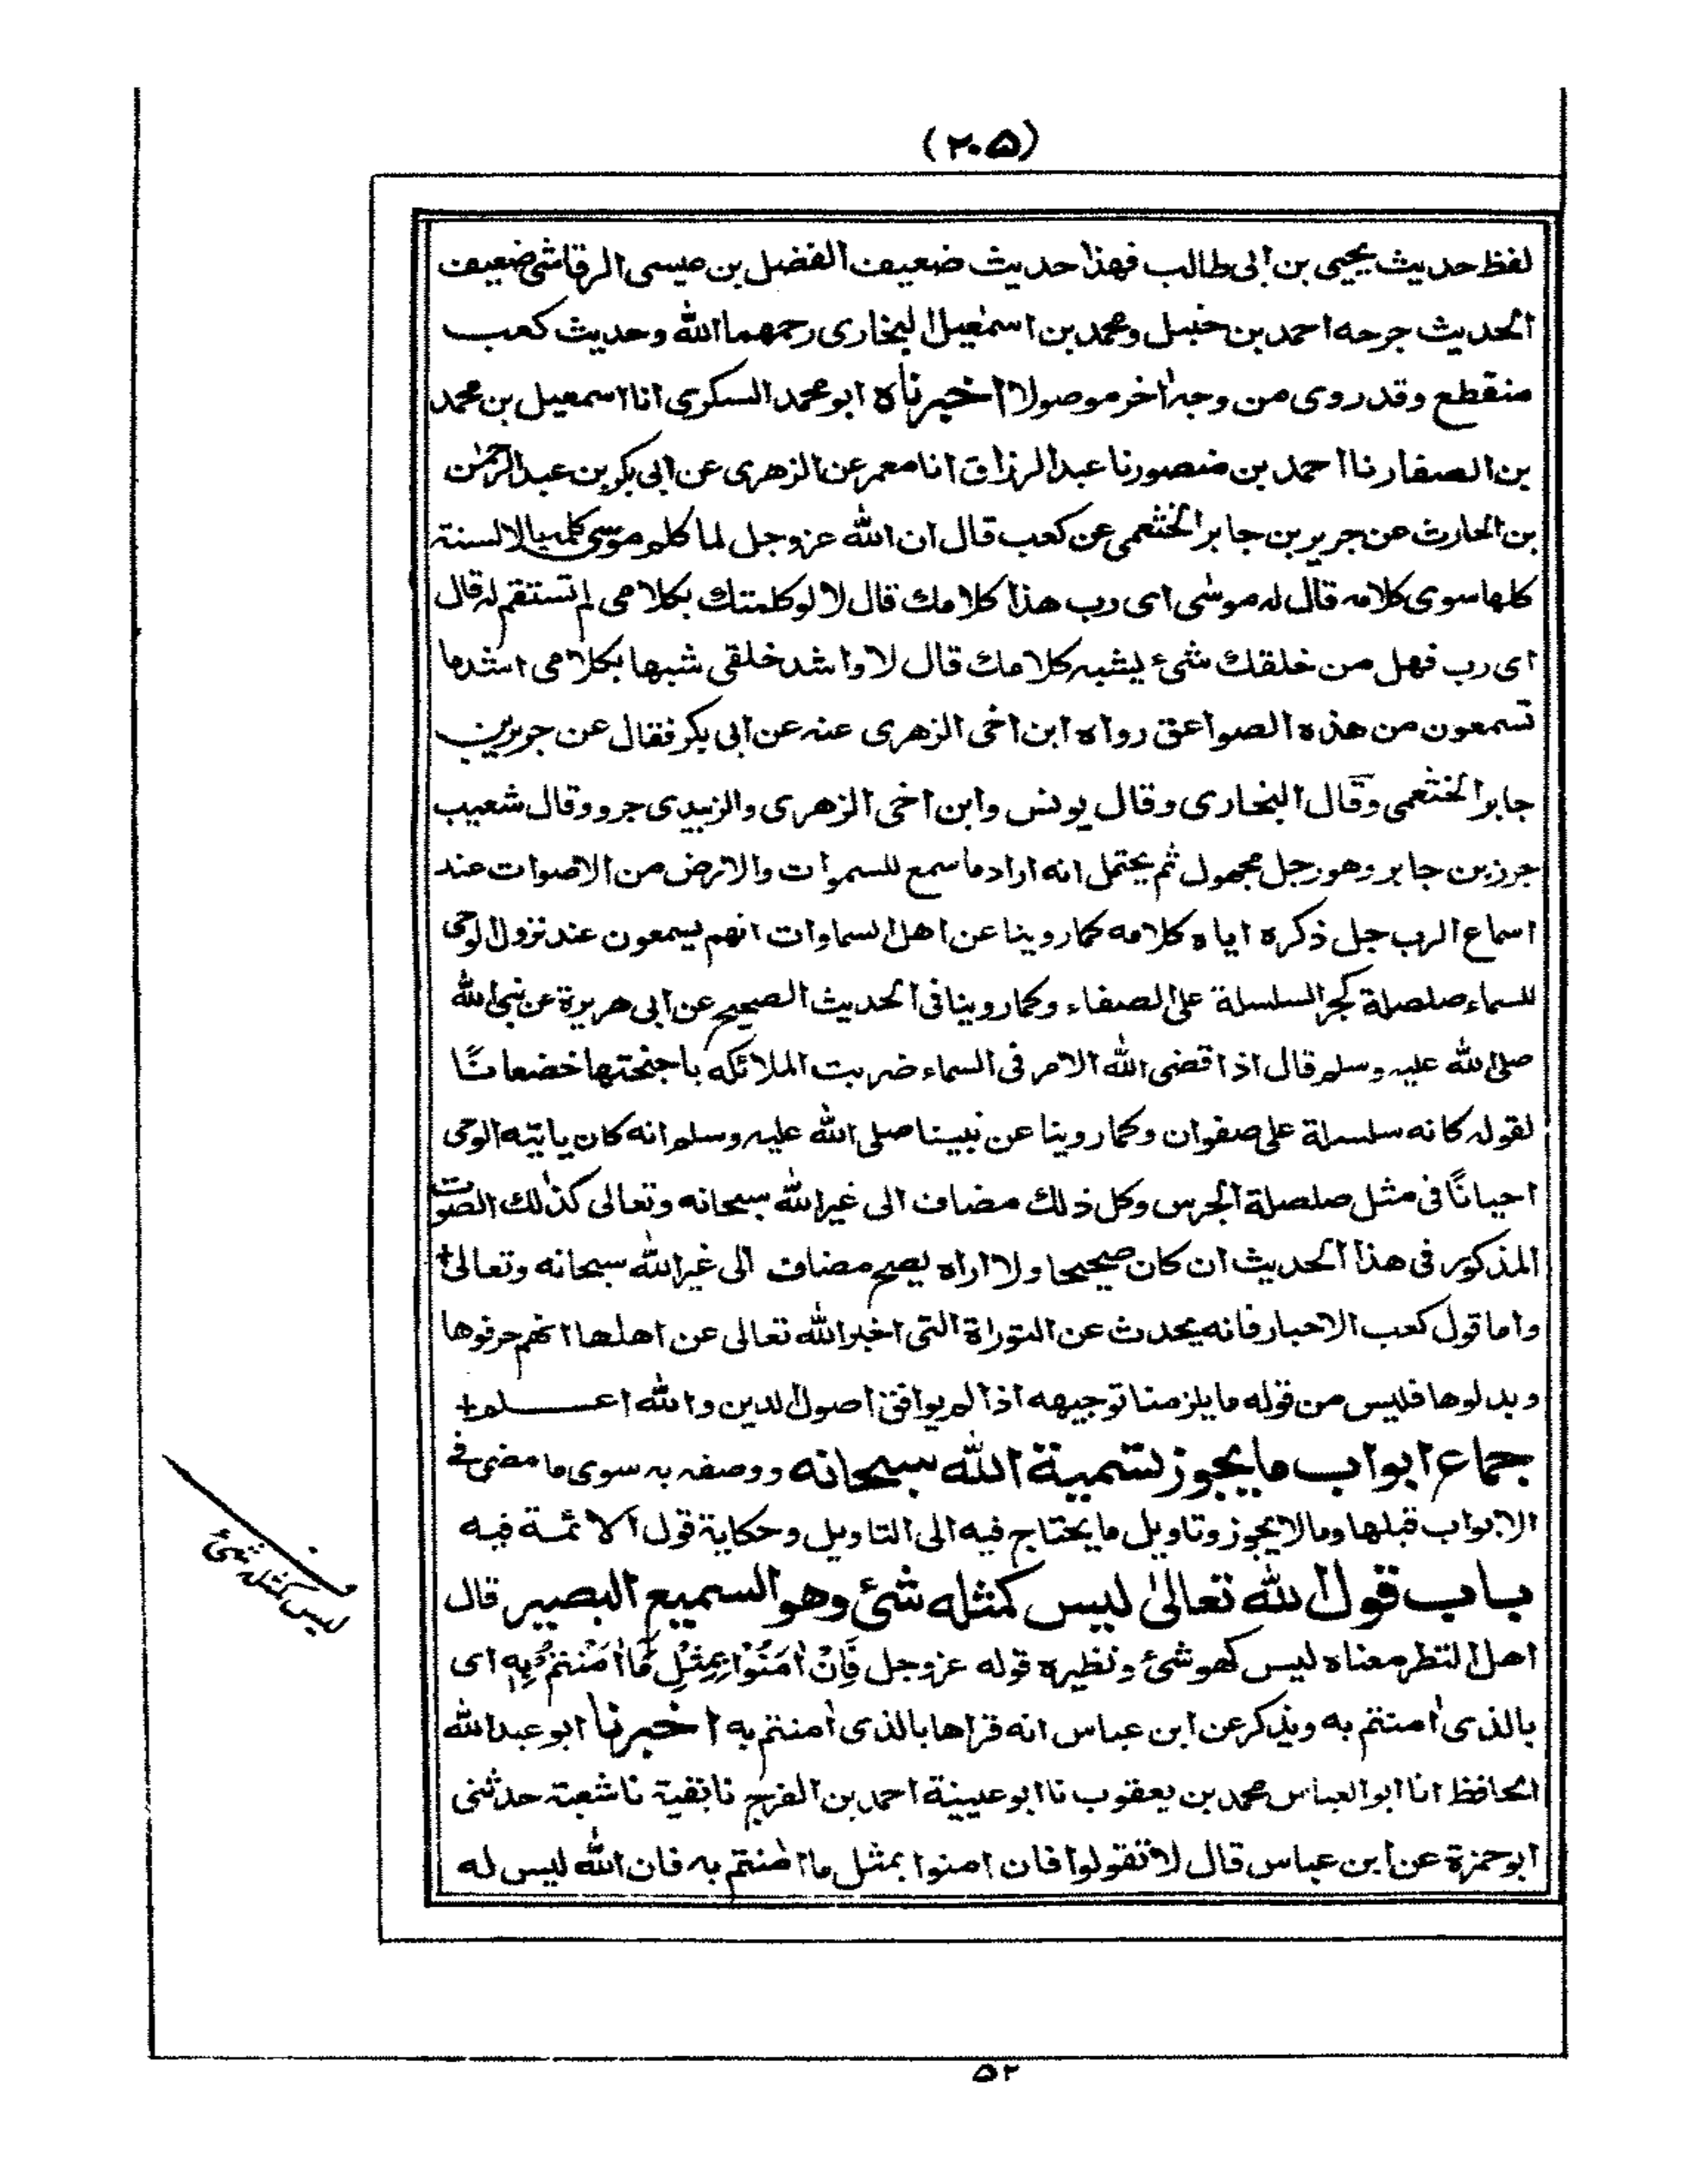 (٢٠٥)
لفظ حديث يحيى بن ابى طالب فهذا حديث ضعيف الفضل بن عيسى الرقاشى ضعيف
الحديث جرحه احمد بن حنبل ومحمد بن اسمٰعيل البخارى رحمهما الله وحديث كعب
منقطع وقد روى من وجه اٰخر موصولا اخبرناه ابو محمد السكرى انا اسمعيل بن محمد
بن الصفار نا احمد بن منصور نا عبد الرزاق انا معمر عن الزهرى عن ابى بكر بن عبد الرحمٰن
بن الحارث عن جرير بن جابر الخثعمى عن كعب قال ان الله عزوجل لما كلم موسى كلمه بالالسنة
كلها سوى كلامه قال له موسٰى اى رب هذا كلامك قال لا لو كلمتك بكلامى لم تستقم له قال
اى رب فهل من خلقك شئ يشبه كلامك قال لا واشد خلقى شبها بكلامى اشد ما
تسمعون من هذه الصواعق رواه ابن اخى الزهرى عنه عن ابى بكر فقال عن جرير بن
جابر الخثعمى وقال البخارى وقال يونس وابن اخى الزهرى والزبيدى جرو وقال شعيب
جرز بن جابر وهو رجل مجهول ثم يحتمل انه اراد ما سمع للسموات والارض من الاصوات عند
اسماع الرب جل ذكره اياه كلامه كما روينا عن اهل السماوات انهم يسمعون عند نزول الوحى
للسماء صلصلة كجر السلسلة على الصفاء وكما روينا فى الحديث الصحيح عن ابى هريرة عن نبى الله
صلى الله عليه وسلم قال اذا قضى الله الامر فى السماء ضربت الملائكه باجنحتها خضعانًا
لقوله كانه سلسلة على صفوان وكما روينا عن نبينا صلى الله عليه وسلم انه كان ياتيه الوحى
احيانًا فى مثل صلصلة الجرس وكل ذلك مضاف الى غير الله سبحانه وتعالى كذٰلك الصوت
المذكور فى هذا الحديث ان كان صحيحا ولا اراه يصح مضاف الى غير الله سبحانه وتعالى+
واما قول كعب الاحبار فانه يحدث عن التوراة التى اخبر الله تعالى عن اهلها انهم حرفوها
وبدلوها فليس من قوله ما يلزمنا توجيهه اذا لم يوافق اصول الدين والله اعـــلم+
جماع ابواب ما يجوز تسمية الله سبحانه ووصفه به سوى ما مضى فى
الابواب قبلها وما لا يجوز وتاويل ما يحتاج فيه الى التاويل وحكاية قول الائمة فيه
باب قول الله تعالىٰ ليس كمثله شئ وهو السميع البصير قال
اهل النظر معناه ليس كهو شئ ونظيره قوله عزوجل فَاِنْ اٰمَنُوْا بِمِثْلِ مَا اٰمَنْتُمْ بِهٖ اى
بالذى اٰمنتم به ويذكر عن ابن عباس انه قراها بالذى اٰمنتم به اخبرنا ابو عبد الله
الحافظ انا ابو العباس محمد بن يعقوب نا ابو عيينة احمد بن الفرج نا بقية نا شعبة حدثنى
ابو حمزة عن ابن عباس قال لا تقولوا فان امنوا بمثل ما اٰمنتم به فان الله ليس له
ليس كمثله شئ
٥٢